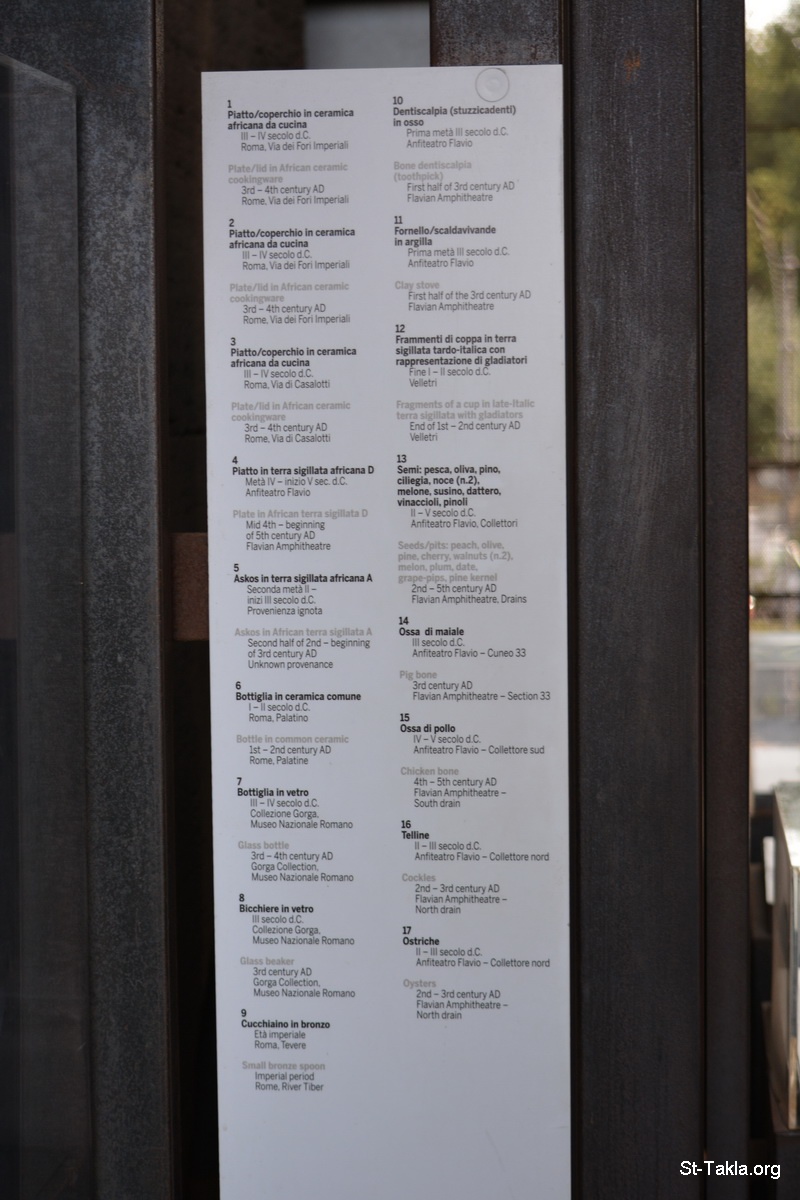 1
Piatto/coperchio in ceramica
africana da cucina
III – IV secolo d.C.
Roma, Via dei Fori Imperiali
Plate/lid in African ceramic
cookingware
3rd – 4th century AD
Rome, Via dei Fori Imperiali
2
Piatto/coperchio in ceramica
africana da cucina
III – IV secolo d.C.
Roma, Via dei Fori Imperiali
Plate/lid in African ceramic
cookingware
3rd – 4th century AD
Rome, Via dei Fori Imperiali
3
Piatto/coperchio in ceramica
africana da cucina
III – IV secolo d.C.
Roma, Via di Casalotti
Plate/lid in African ceramic
cookingware
3rd – 4th century AD
Rome, Via di Casalotti
4
Piatto in terra sigillata africana D
Metà IV – inizio V sec. d.C.
Anfiteatro Flavio
Plate in African terra sigillata D
Mid 4th – beginning
of 5th century AD
Flavian Amphitheatre
5
Askos in terra sigillata africana A
Seconda metà II –
inizi III secolo d.C.
Provenienza ignota
Askos in African terra sigillata A
Second half of 2nd – beginning
of 3rd century AD
Unknown provenance
6
Bottiglia in ceramica comune
I – II secolo d.C.
Roma, Palatino
Bottle in common ceramic
1st – 2nd century AD
Rome, Palatine
7
Bottiglia in vetro
III – IV secolo d.C.
Collezione Gorga,
Museo Nazionale Romano
Glass bottle
3rd – 4th century AD
Gorga Collection,
Museo Nazionale Romano
8
Bicchiere in vetro
III secolo d.C.
Collezione Gorga,
Museo Nazionale Romano
Glass beaker
3rd century AD
Gorga Collection,
Museo Nazionale Romano
9
Cucchiaino in bronzo
Età imperiale
Roma, Tevere
Small bronze spoon
Imperial period
Rome, River Tiber
10
Dentiscalpia (stuzzicadenti)
in osso
Prima metà III secolo d.C.
Anfiteatro Flavio
Bone dentiscalpia
(toothpick)
First half of 3rd century AD
Flavian Amphitheatre
11
Fornello/scaldavivande
in argilla
Prima metà III secolo d.C.
Anfiteatro Flavio
Clay stove
First half of the 3rd century AD
Flavian Amphitheatre
12
Frammenti di coppa in terra
sigillata tardo-italica con
rappresentazione di gladiatori
Fine I – II secolo d.C.
Velletri
Fragments of a cup in late-Italic
terra sigillata with gladiators
End of 1st – 2nd century AD
Velletri
13
Semi: pesca, oliva, pino,
ciliegia, noce (n.2),
melone, susino, dattero,
vinaccioli, pinoli
II – V secolo d.C.
Anfiteatro Flavio, Collettori
Seeds/pits: peach, olive,
pine, cherry, walnuts (n.2),
melon, plum, date,
grape-pips, pine kernel
2nd – 5th century AD
Flavian Amphitheatre, Drains
14
Ossa di maiale
III secolo d.C.
Anfiteatro Flavio – Cuneo 33
Pig bone
3rd century AD
Flavian Amphitheatre – Section 33
15
Ossa di pollo
IV – V secolo d.C.
Anfiteatro Flavio – Collettore sud
Chicken bone
4th – 5th century AD
Flavian Amphitheatre –
South drain
16
Telline
II – III secolo d.C.
Anfiteatro Flavio – Collettore nord
Cockles
2nd – 3rd century AD
Flavian Amphitheatre –
North drain
17
Ostriche
II – III secolo d.C.
Anfiteatro Flavio – Collettore nord
Oysters
2nd – 3rd century AD
Flavian Amphitheatre –
North drain
St-Takla.org